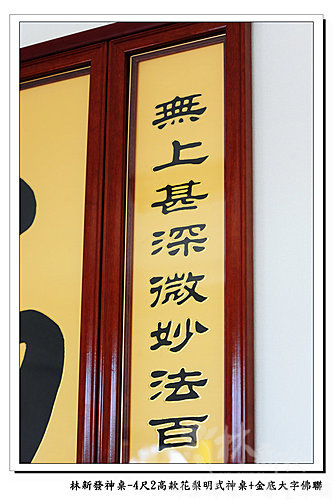 無上甚深微妙法百
林新發神桌-4尺2高款花梨明式神桌+金底大字佛聯